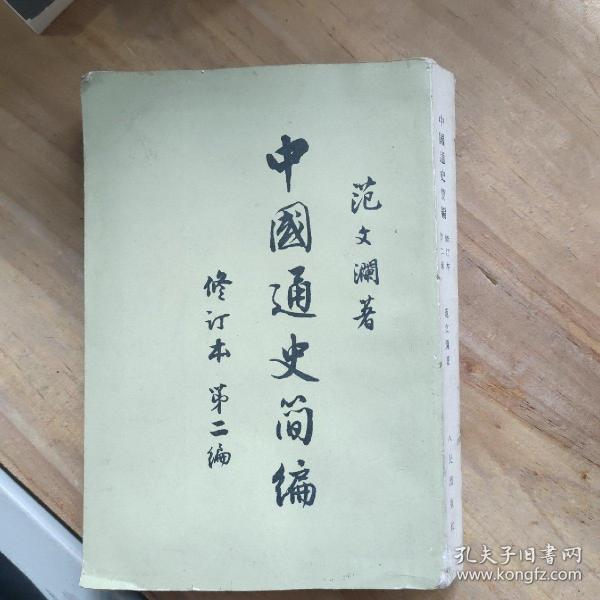 范文瀾著
中國通史简编
修订本 第二编
中國通史简编
修订本
第二编
范文瀾著
人民出版社
孔夫子旧书网
www.kongfz.com